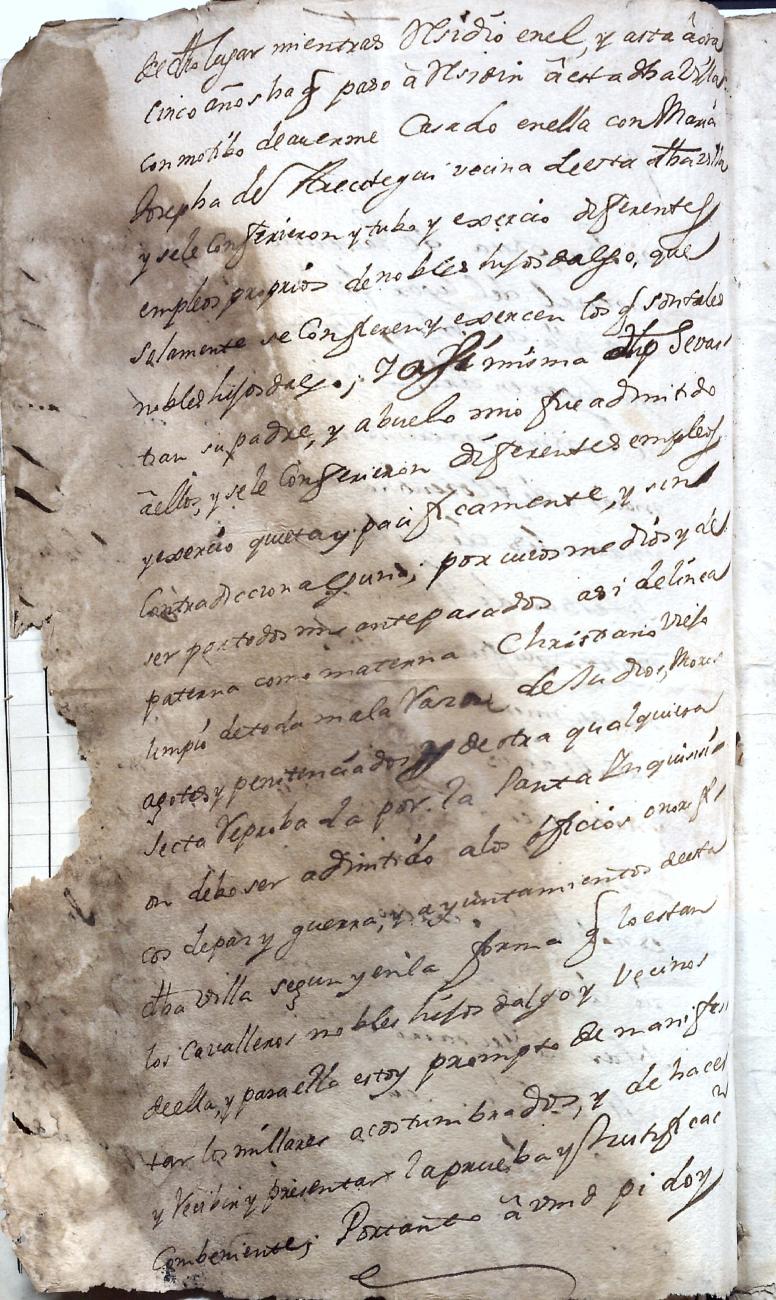 de dho lugar mientras Residio enel, y asta âora
cinco años ha q paso à Residir â esta dha Villa
con motibo de auerme Casado enella con Maria
Josepha de Arecetegui vecina de esta dha villa
y sele Confirieron y tubo y exercio diferentes
empleos proprios de nobles hijosdalgo, que
solamente se Confieren y exercen los q sontales
nobles hijosdalgo; y assi mismo dho Sevas
tian su padre, y abuelo mio fue admitido
âellos, y se le Confirieron diferentes empleos
y exercio quieta y pacificamente, y sin
Contradiccion alguna; por cuios medios y de
ser por todos mis antepasados asi de linea
paterna como materna Christiano Viejo
limpio de toda mala Raza de Judios, Moros
agotes y penitenciados y de otra qualquiera
secta Reprobada por la Santa Inquisici
on debo ser admitido alos oficios onorifi
cos de paz y guerra, y ayuntamientos de esta
dha villa segun y enla forma q lo estan
los Cavalleros nobles hijosdalgo y Vecinos
de ella, y para ello estoy prompto de manifes
tar los millares acostumbrados, y de hacer
y Recibir y presentar la prueba y Justificac.on
Combeniente; Portanto â vmd pido y